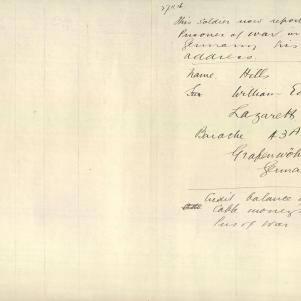 This soldier now repor
Prisoner of war in
Germany his
address.
Name Hills
William Ed
Lazarett
Barache A3A
Grafenwöh
Germa
Credit balance
Cabb moneys
Pris of War